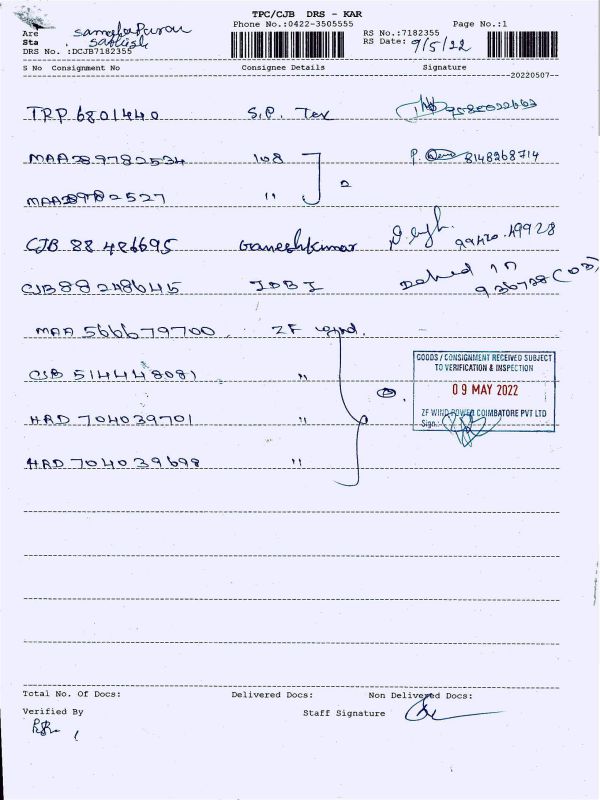 TPC/CJB DRS - KAR
Phone No.:0422-3505555 Page No.:1
Are
Sta Satlish
DRS No. :DCJB7182355
RS No.:7182355
RS Date: 9/5/22
S No Consignment No Consignee Details Signature
20220507--
TRP 6801440 S.P. Tex
MAA 289782534 108 P. 8148268714
MAA 289782527 "
CJB 88486695 Ganeshkumar 99420.49928
CJB88248645 IDBI
MAA 566679700 ZF wind.
CJB 514448081 "
HRD 704039701 "
HRD 704039698 "
GOODS / CONSIGNMENT RECEIVED SUBJECT
TO VERIFICATION & INSPECTION
09 MAY 2022
ZF WIND POWER COIMBATORE PVT LTD
Sign.:
Total No. Of Docs: Delivered Docs: Non Delivered Docs:
Verified By Staff Signature